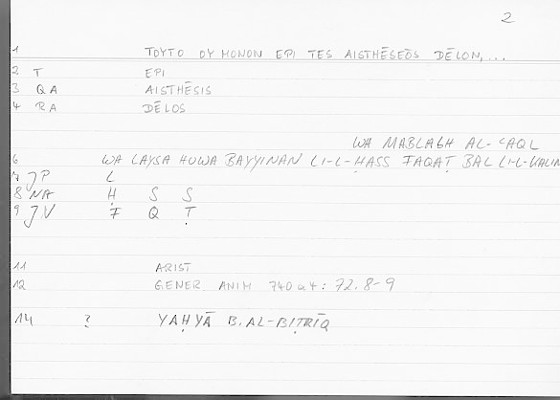 2
1 TOYTO OY MONON EPI TES AISTHĒSEŌS DĒLON,...
2 T EPI
3 QA AISTHĒSIS
4 RA DĒLOS
WA MABLAGH AL-ʿAQL
6 WA LAYSA HUWA BAYYINAN LI-L-ḤASS FAQAṬ BAL LI-L-
7 JP L
8 NA Ḥ S S
9 JV F Q Ṭ
11 ARIST
12 GENER ANIM 740 a 4: 72.8-9
14 ? YAḤYĀ B. AL-BIṬRĪQ